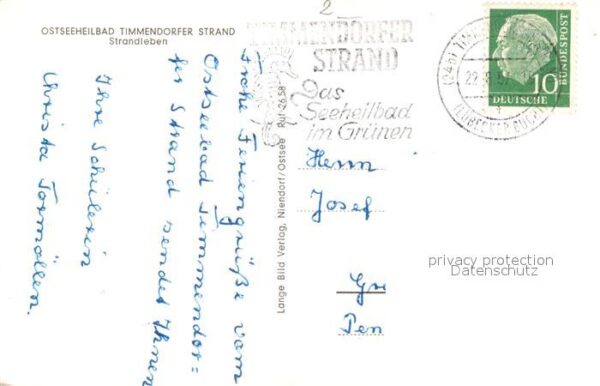 OSTSEEHEILBAD TIMMENDORFER STRAND
Strandleben
Frohe Feriengrüße vom
Ostseebad Timmendor-
fer Strand sendet Ihnen
Ihre Schülerin
Christa Tormöllen.
Lange Bild Verlag, Niendorf/Ostsee Ruf 2658
2
TIMMENDORFER
STRAND
Das
Seeheilbad
im Grünen
(24b)
22
LÜBECKER BUCHT
10
DEUTSCHE
BUNDESPOST
Herrn
Josef
Gre
Pen
privacy protection
Datenschutz